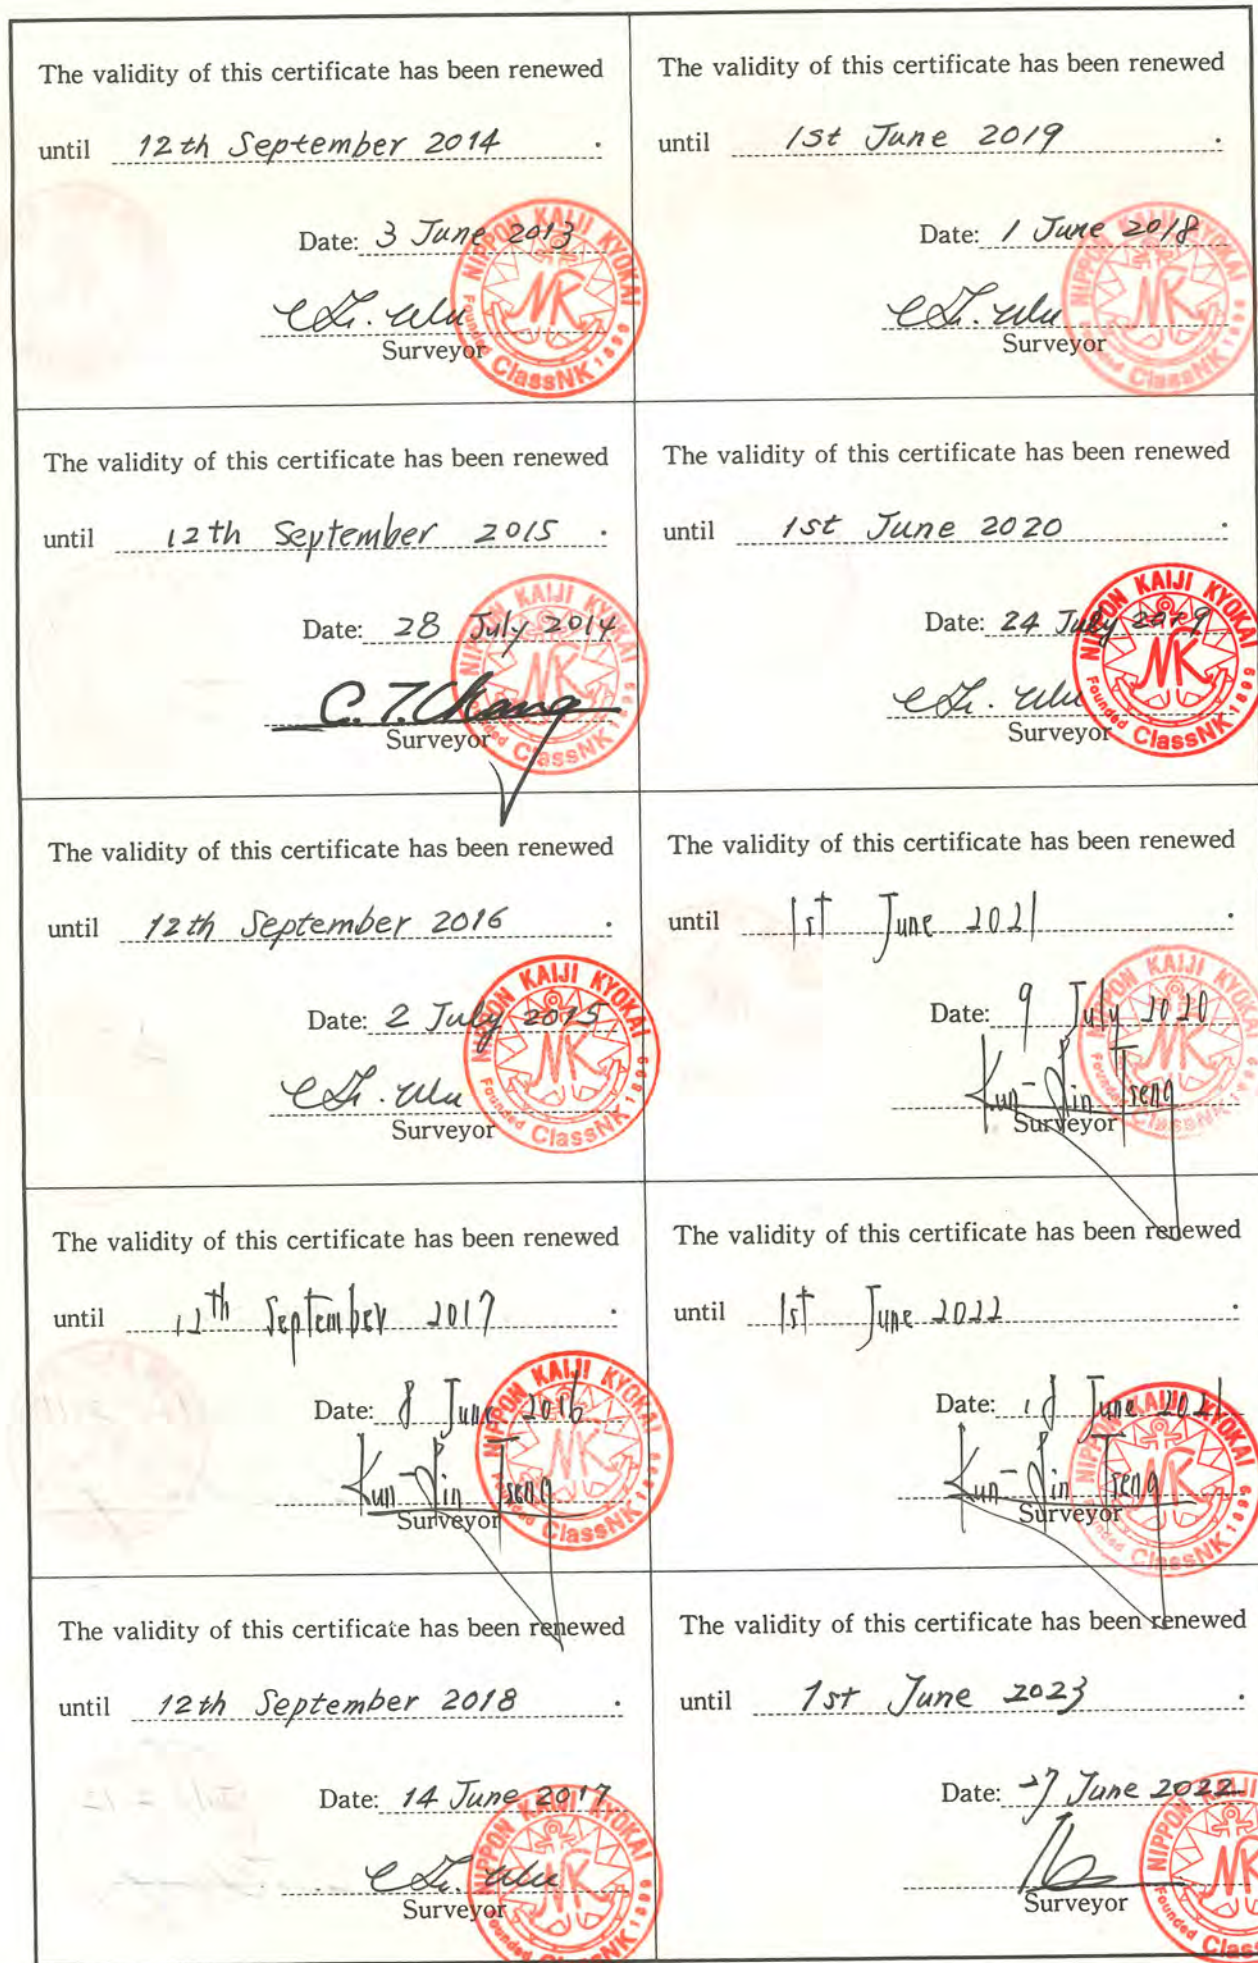 The validity of this certificate has been renewed
until 12th September 2014 .
Date: 3 June 2013
Surveyor
NIPPON KAIJI KYOKAI
NK
Founded 1899
ClassNK
The validity of this certificate has been renewed
until 12th September 2015 .
Date: 28 July 2014
C. T. Chang
Surveyor
NIPPON KAIJI KYOKAI
NK
Founded 1899
ClassNK
The validity of this certificate has been renewed
until 12th September 2016 .
Date: 2 July 2015
Surveyor
NIPPON KAIJI KYOKAI
NK
Founded 1899
ClassNK
The validity of this certificate has been renewed
until 12th September 2017 .
Date: 8 June 2016
Kun-Lin Tseng
Surveyor
NIPPON KAIJI KYOKAI
NK
Founded 1899
ClassNK
The validity of this certificate has been renewed
until 12th September 2018 .
Date: 14 June 2017
Surveyor
NIPPON KAIJI KYOKAI
NK
Founded 1899
ClassNK
The validity of this certificate has been renewed
until 1st June 2019 .
Date: 1 June 2018
Surveyor
NIPPON KAIJI KYOKAI
NK
Founded 1899
ClassNK
The validity of this certificate has been renewed
until 1st June 2020 .
Date: 24 July 2019
Surveyor
NIPPON KAIJI KYOKAI
NK
Founded 1899
ClassNK
The validity of this certificate has been renewed
until 1st June 2021 .
Date: 9 July 2020
Kun-Lin Tseng
Surveyor
NIPPON KAIJI KYOKAI
NK
Founded 1899
ClassNK
The validity of this certificate has been renewed
until 1st June 2022 .
Date: 18 June 2021
Kun-Lin Tseng
Surveyor
NIPPON KAIJI KYOKAI
NK
Founded 1899
ClassNK
The validity of this certificate has been renewed
until 1st June 2023 .
Date: 27 June 2022
Surveyor
NIPPON KAIJI
NK
Founded
Class